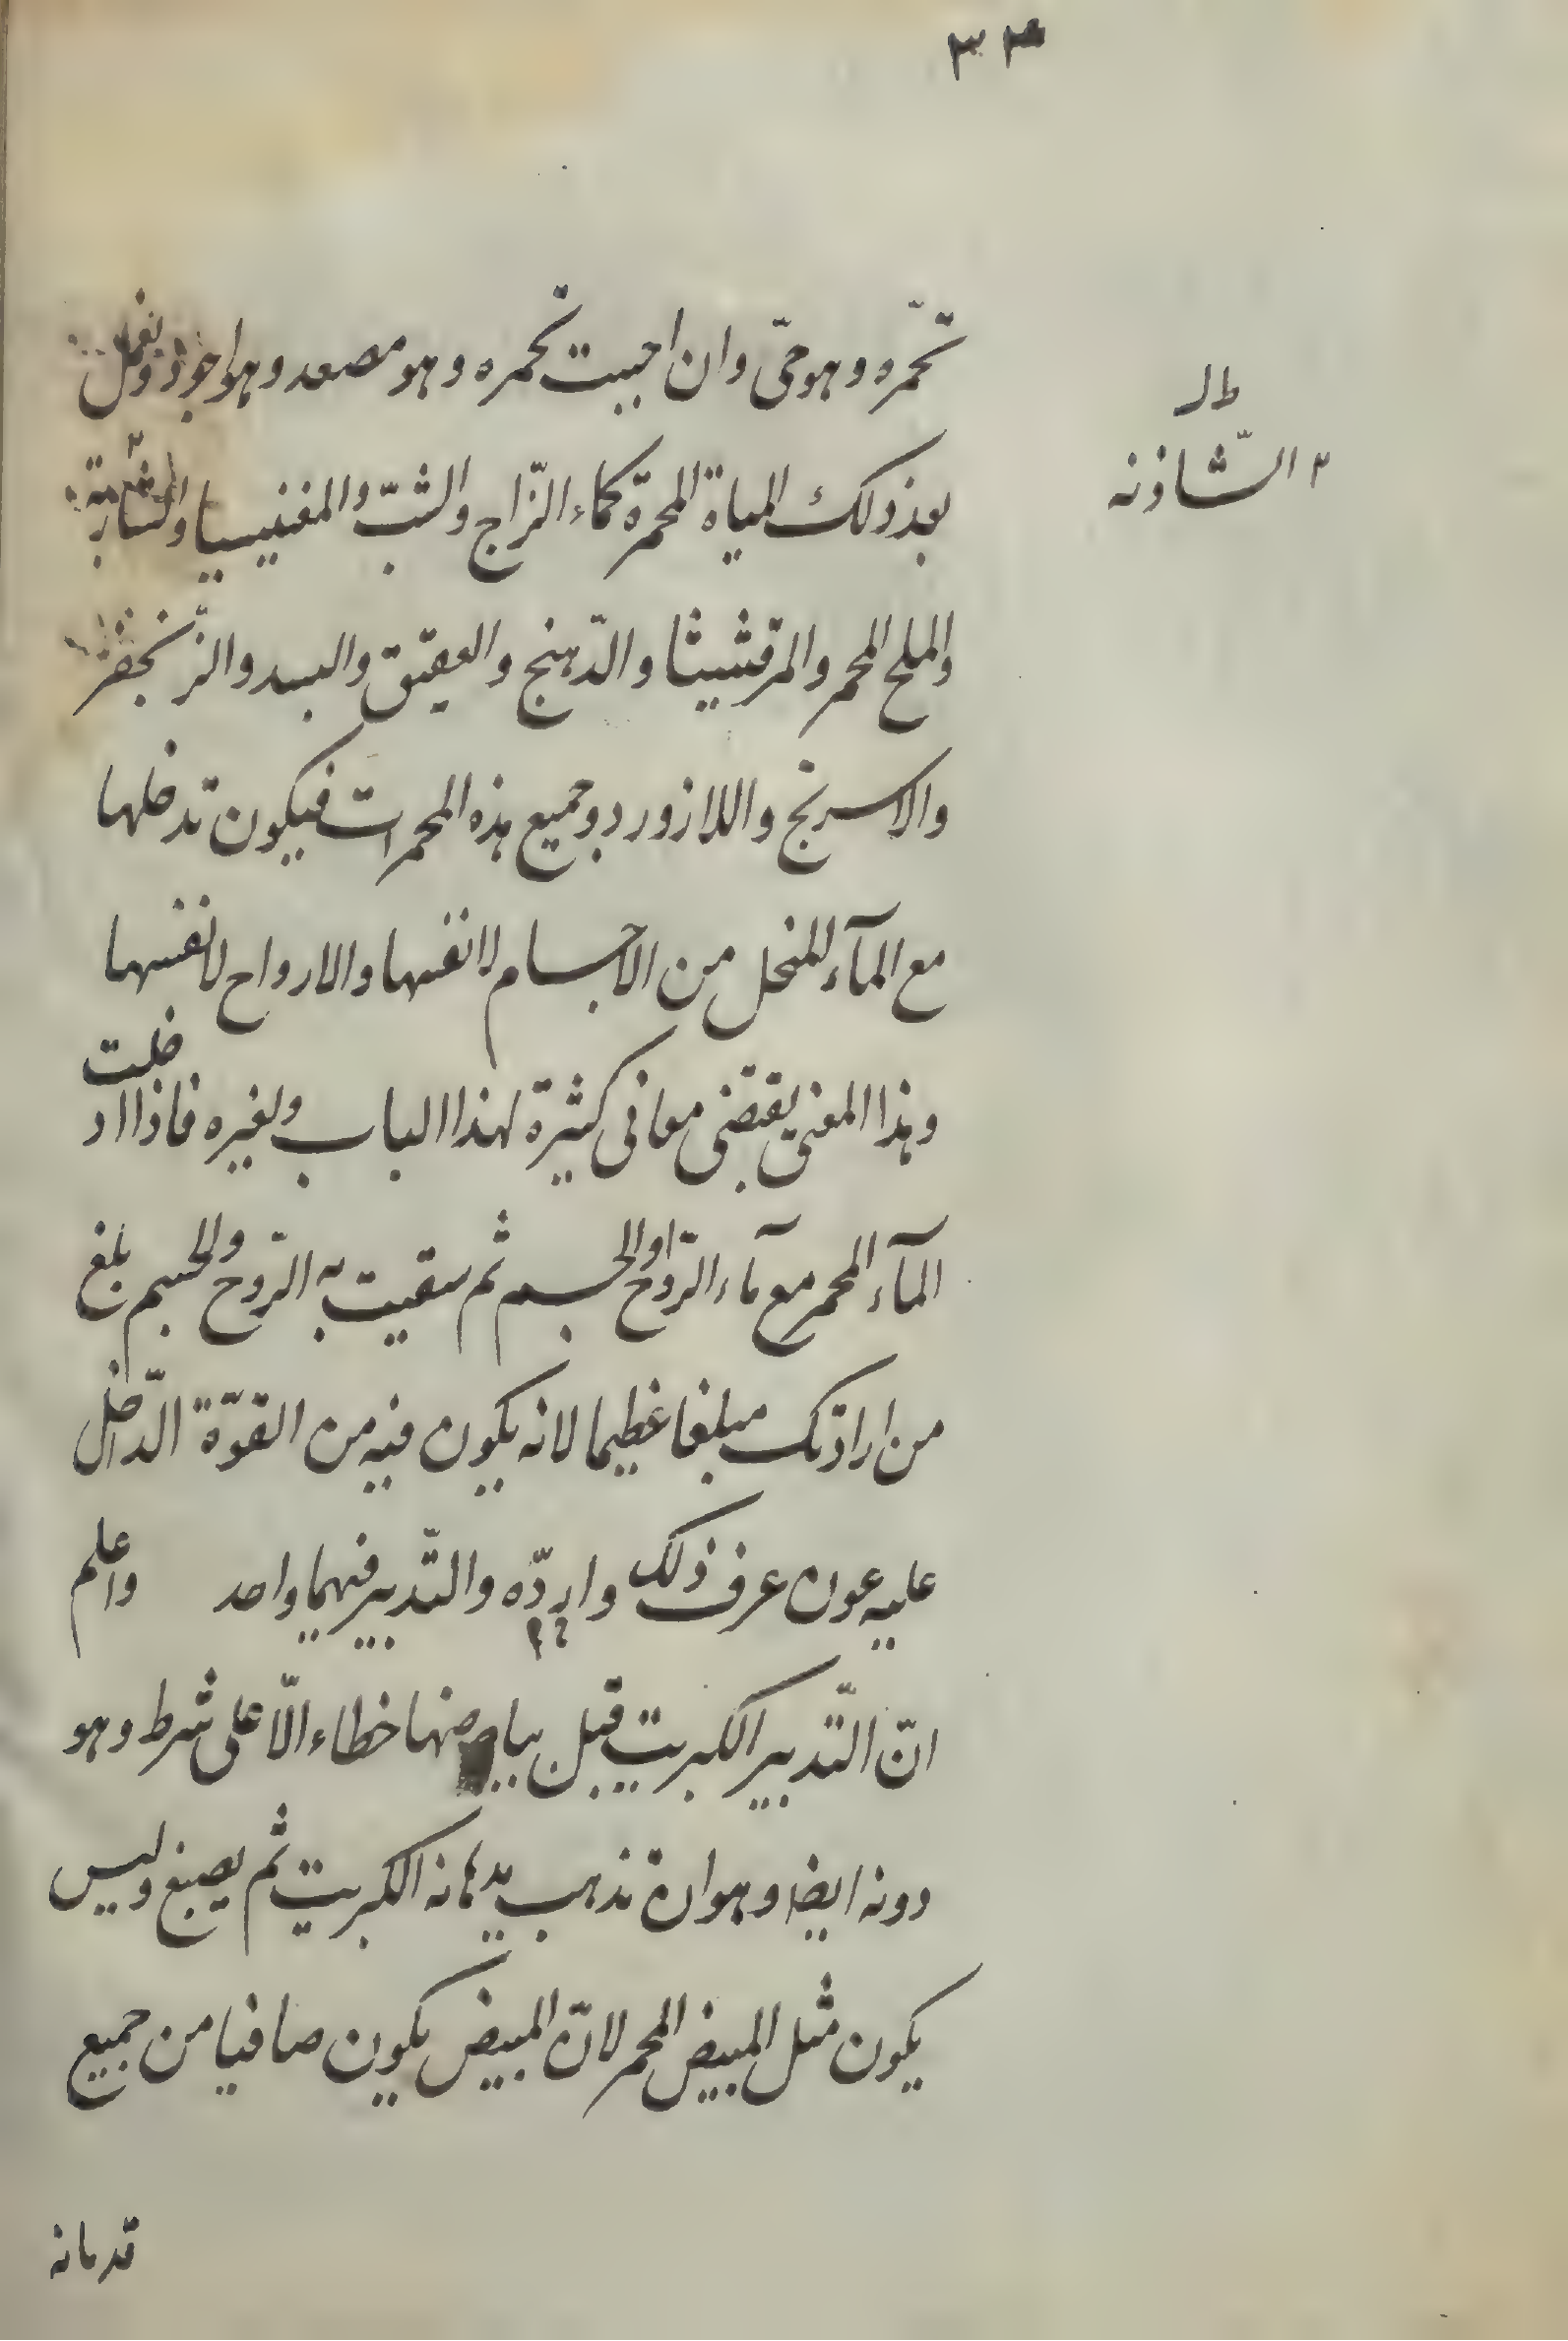 ٣٤
تحمّره وهو حىّ وان احببت تحمره وهو مصعد وهو اجود
بعد ذلك المياة المحمرة كماء الزّاج والشبّ والمغنيسيا
ط ل
٢ الشّاذنه
والملح المحمر والمرقشيثا والدّهنج والعقيق والبسد والزّنجفر
والاسرنج واللازورد وجميع هذه المحمرات فيكون تدخلها
مع المآء المنحل من الاجسام لانفسها والارواح لانفسها
وهذا المعنى يقتضى معانى كثيرة لهذا الباب ولغيره فاذا ادخلت
المآء المحمر مع مآء الرّوح او الجسم ثم سقيت به الرّوح والجسم بلغ
من ارادتك مبلغا عظيما لانه يكون فيه من القوّة الدّاخل
عليه عون عرف ذلك والتّدبير فيهما واحد واعلم
انّ التّدبير الكبريت قبل بياضها خطاء الّا على شرط وهو
دونه ايضا وهو ان تذهب بدهانة الكبريت ثم يصبغ وليس
يكون مثل المبيض المحمر لانّ المبيض يكون صافيا من جميع